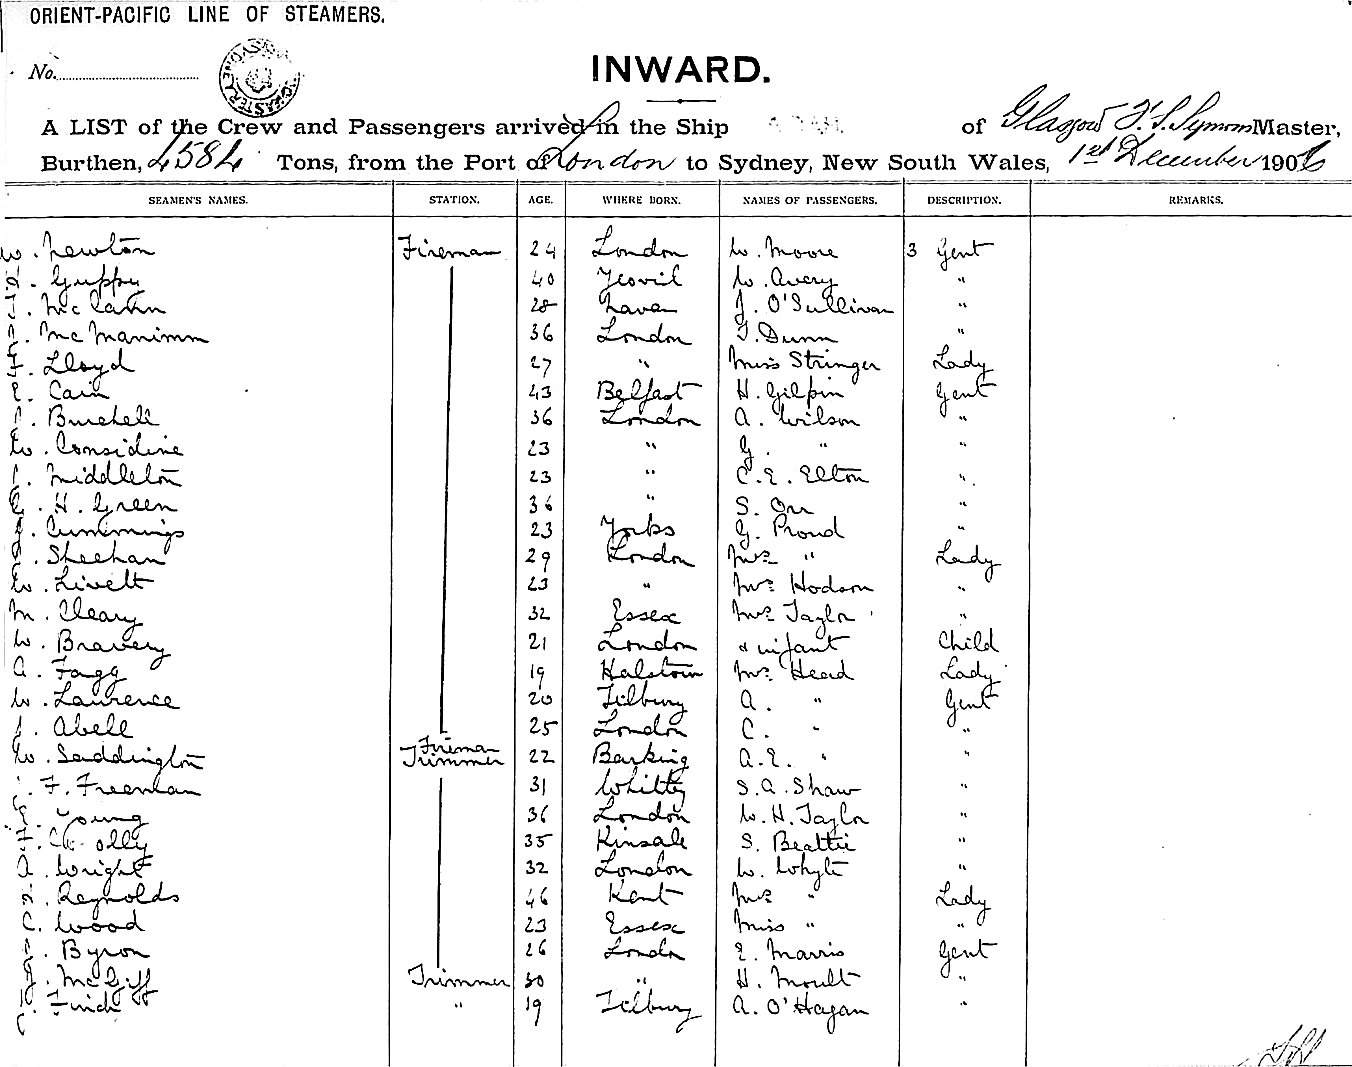 ORIENT-PACIFIC LINE OF STEAMERS.
No.
INWARD.
A LIST of the Crew and Passengers arrived in the Ship of Glasgow Master,
Burthen, 4584 Tons, from the Port of London to Sydney, New South Wales, 1st December 1906
SEAMEN'S NAMES. STATION. AGE. WHERE BORN. NAMES OF PASSENGERS. DESCRIPTION. REMARKS.
W. Newton Fireman 24 London W. Moore 3 Gent
Guppy 40 Yeovil W. Avery "
28 J. O'Sullivan "
McManimm 36 London T. Dunn "
F. Lloyd 27 " Miss Stringer Lady
E. Cain 43 Belfast H. Gilpin Gent
Burchell 36 London A. Wilson "
W. Considine 23 " G. " "
Middleton 23 " C. E. Elton "
G. H. Green 36 " S. Orr "
J. Cummings 23 Yorks G. Proud "
Sheehan 29 London Mrs " Lady
W. Livett 23 " Mrs Hodson "
M. Cleary 32 Essex Mrs Taylor "
W. Bravery 21 London " infant Child
A. Fagg 19 Halstow Mrs Head Lady
W. Laurence 20 Tilbury A. " Gent
Abell 25 London C. " "
W. Saddington Fireman Trimmer 22 Barking A. E. " "
F. Freeman 31 Whitby S. A. Shaw "
Young 36 London W. H. Taylor "
35 Kinsale S. Beattie "
A. Wright 32 London W. Whyte "
Reynolds 46 Kent Mrs " Lady
C. Wood 23 Essex Miss " "
Byron 26 London E. Marris Gent
J. McGiff Trimmer 30 " H. Moult "
Finch " 19 Tilbury A. O'Hagan "